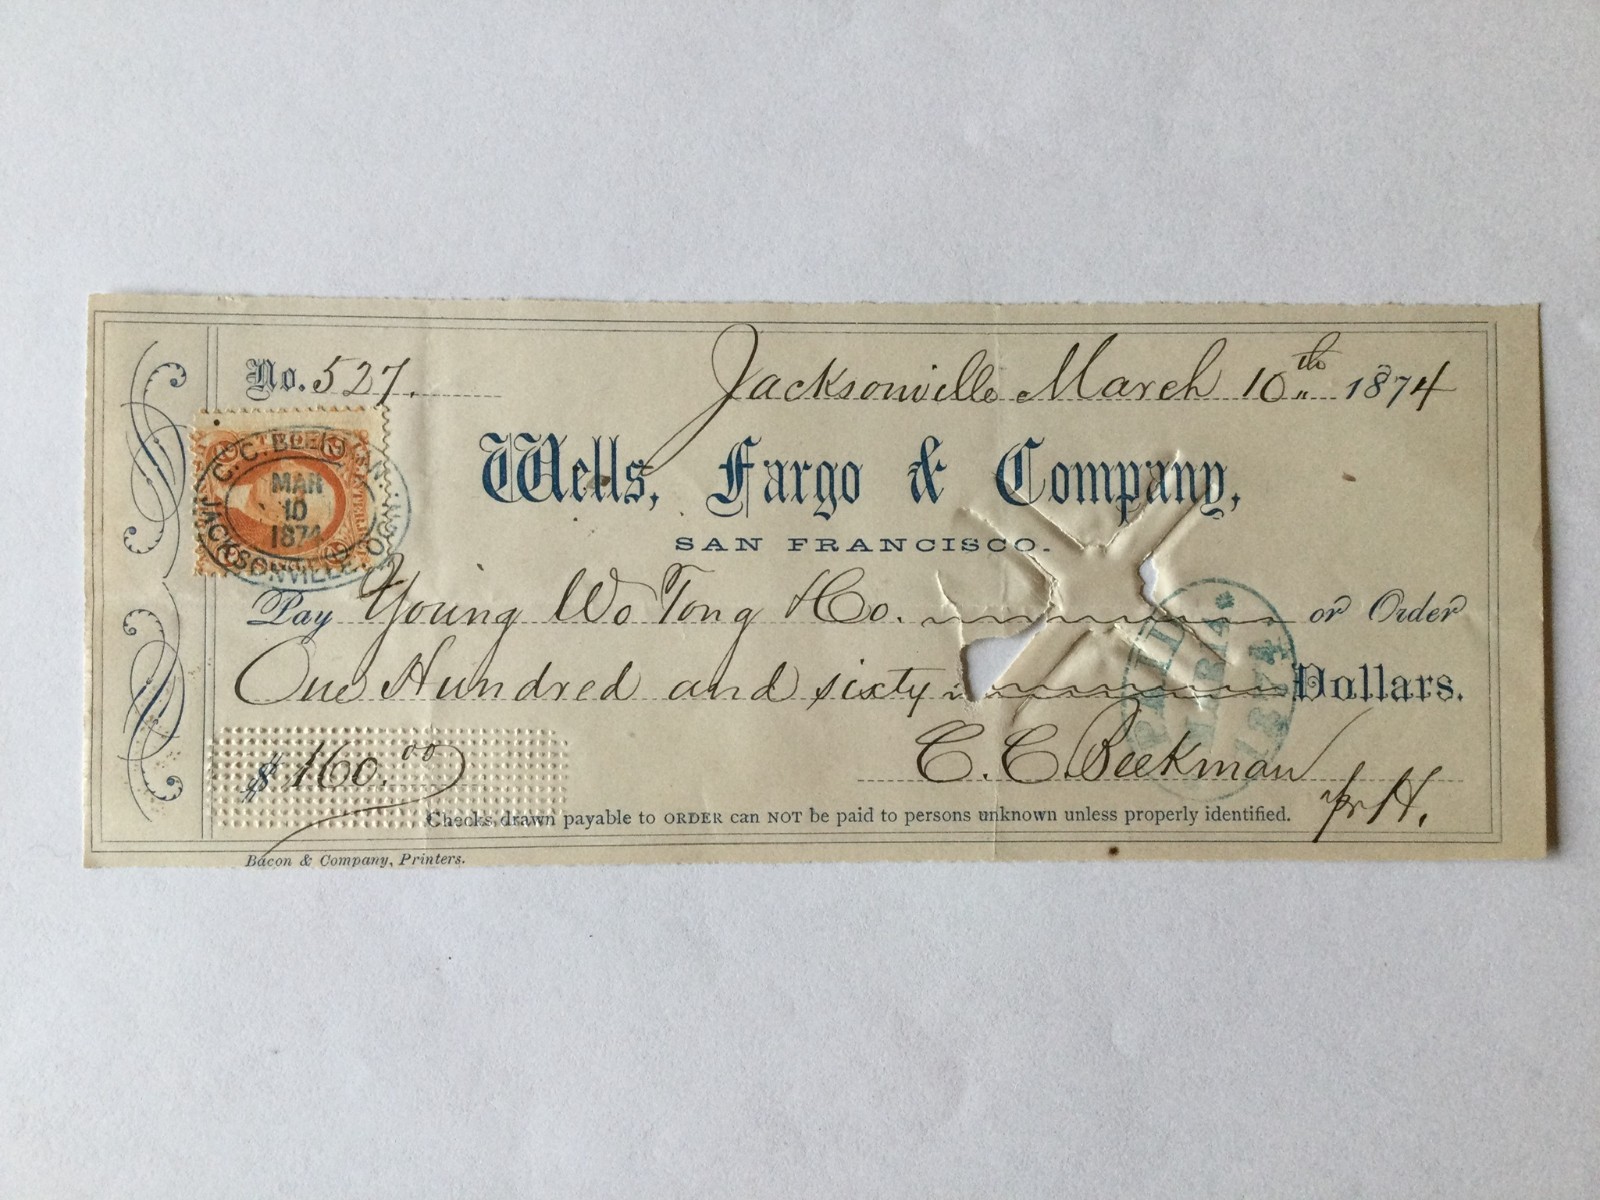 No. 527.
Jacksonville March 10th 1874
C. C. BEEKMAN.
MAR
10
1874
JACKSONVILLE, OGN.
Wells, Fargo & Company,
SAN FRANCISCO.
Pay Young Wo Tong & Co. or Order
One Hundred and sixty Dollars.
PAID
MAR 14
1874
$ 160.00
C. C. Beekman
pr H.
Checks drawn payable to ORDER can NOT be paid to persons unknown unless properly identified.
Bacon & Company, Printers.